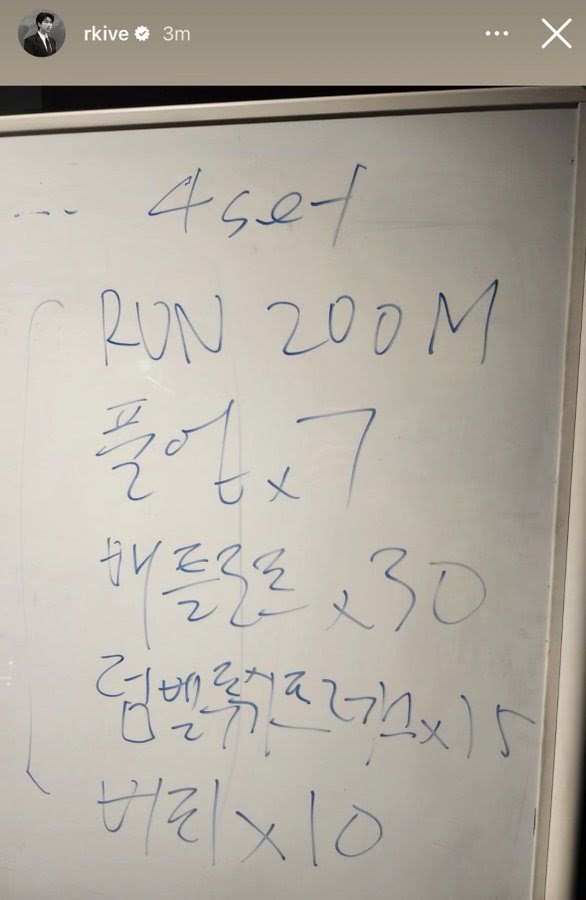 rkive 3m
4 set
RUN 200M
풀업 x 7
배틀로프 x 30
덤벨 프레스 x 15
버피 x 10